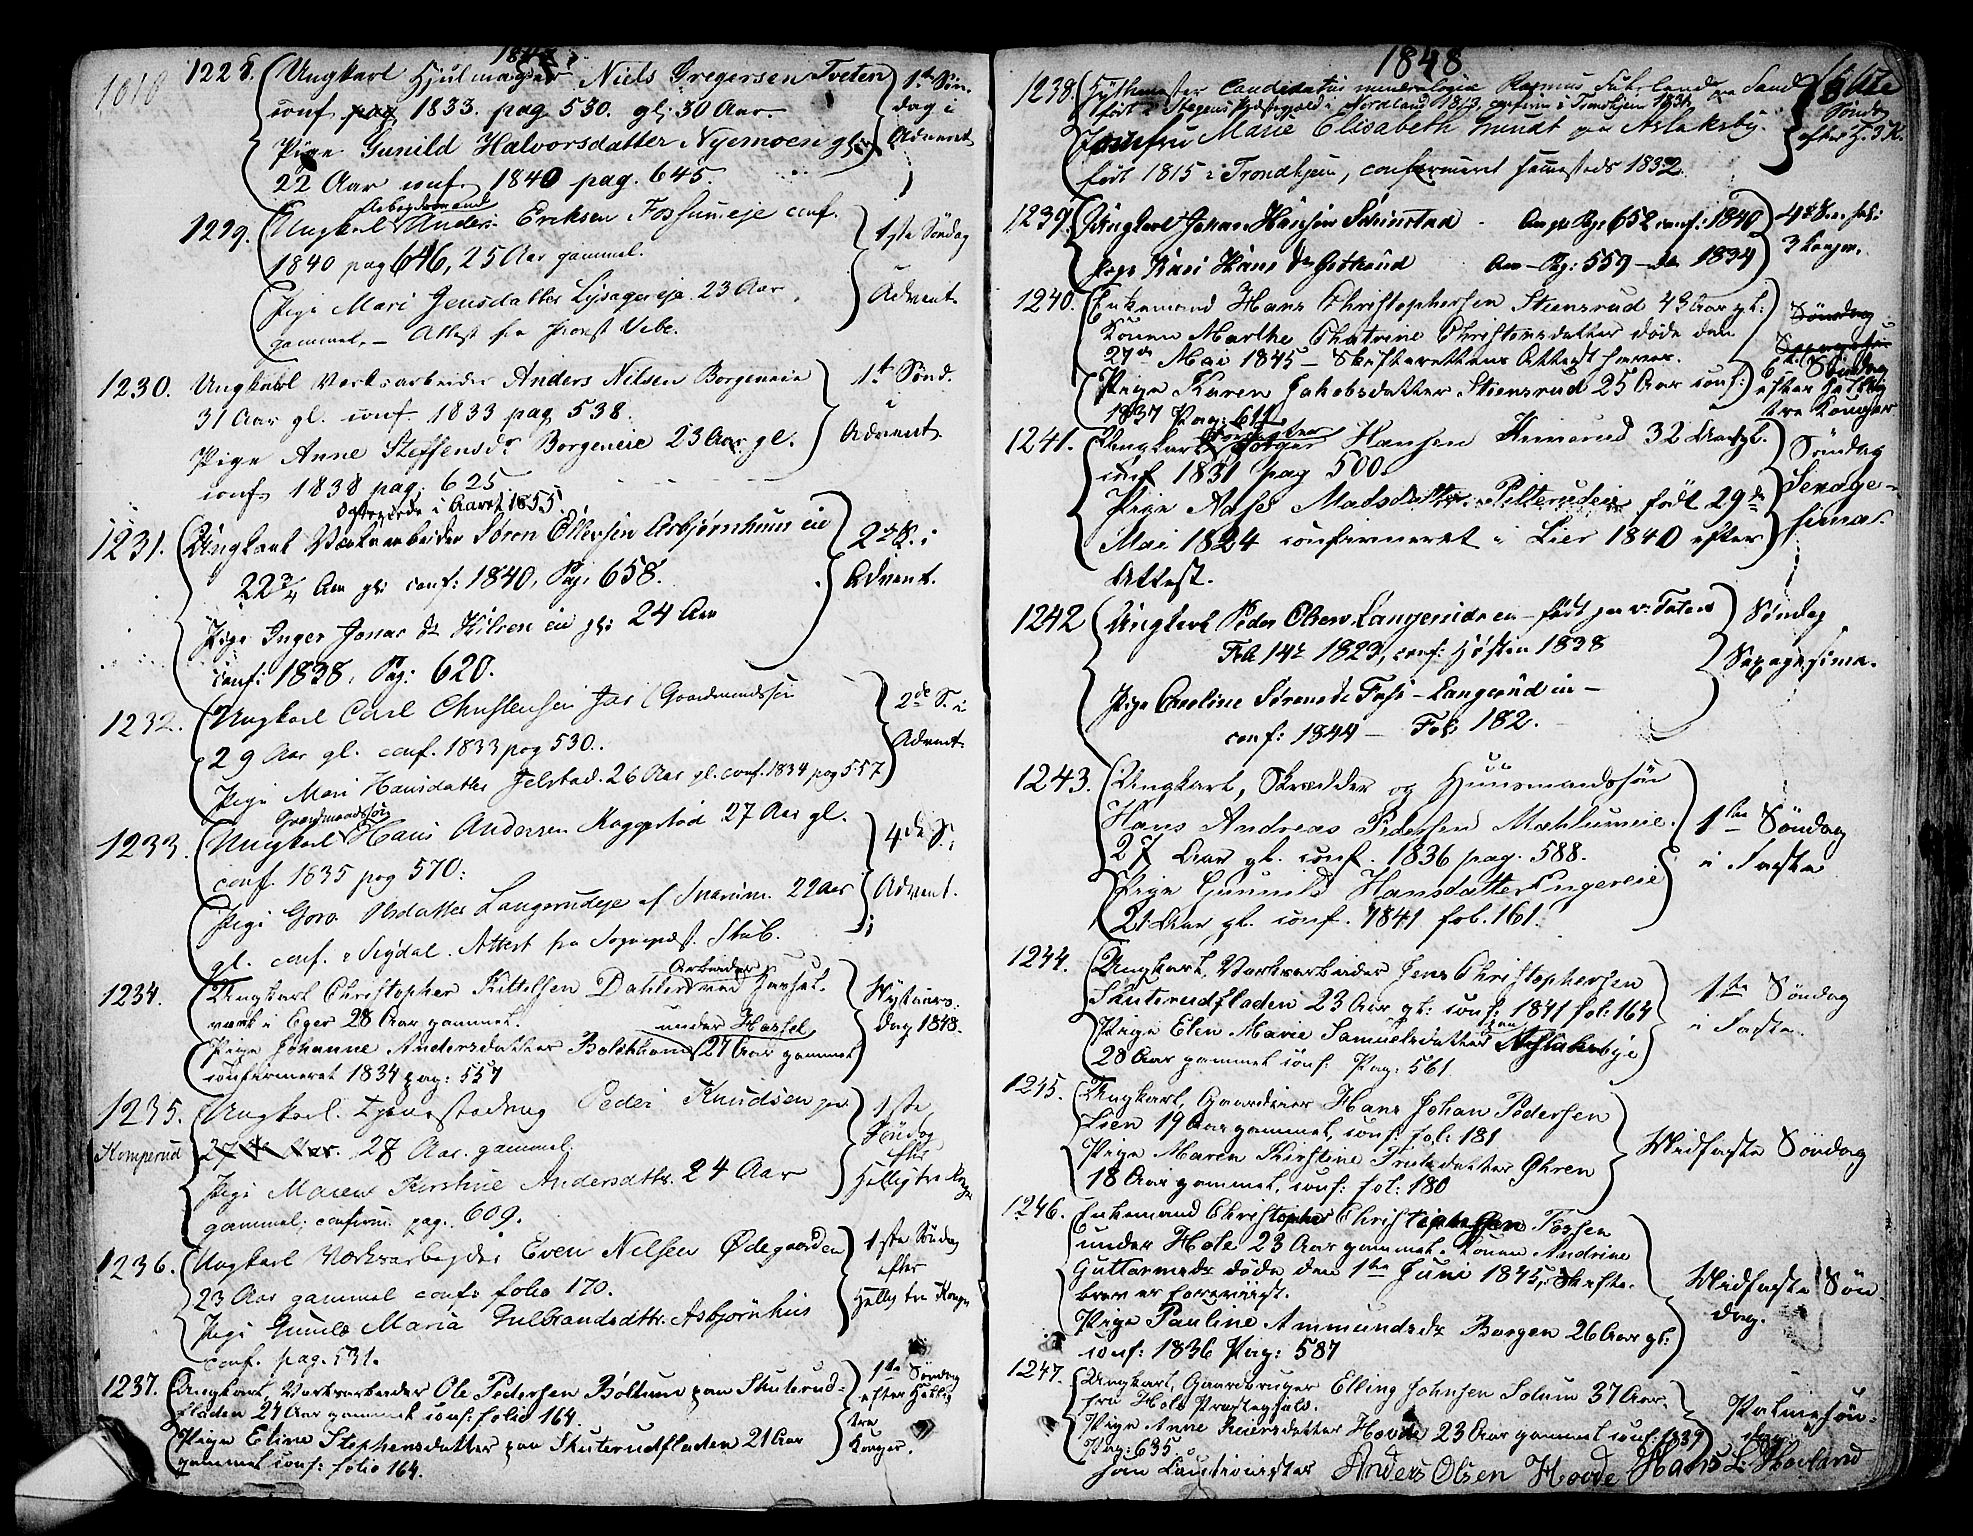 1847.
1228. Ungkarl Hjulmager Niels Gregersen Tveten
conf. pag 1833. pag. 530. gl: 30 Aar.
Pige Gunild Halvorsdatter Nyemoen gl:
22 Aar conf. 1840 pag. 645.
1ste Søn-
dag i
Advent
Arbeidsmand
1229. Ungkarl Anders Eriksen Fossumeje conf.
1840 pag 646, 25 Aar gammel.
Pige Mari Jensdatter Lysagereje 23 Aar
gammel. – Attest fra Provst Vibe.
1ste Søndag
Advent
1230. Ungkarl Værksarbeider Anders Nilsen Borgeneie
31 Aar gl. conf. 1833 pag. 538.
Pige Anne Steffensdr Borgeneie 23 Aar gl.
conf. 1838 pag. 625
1ste Sønd.
Advent.
i Aaret 1855
1231. Ungkarl Værksarbeider Søren Ellevsen Asbjørnhuus eie
22 3/4 Aar gl: conf: 1840, Pag. 658.
Pige Inger Jonas Dr Hilsen eie gl: 24 Aar
conf: 1838, Pag: 620.
2de S. i
Advent.
1232. Ungkarl Carl Christensen Jar (Gaardmandssøn
29 Aar gl. conf. 1833 pag 530.
Pige Mari Hansdatter Jelstad. 26 Aar gl. conf. 1834 pag 557
2de S. i
Advent
Gaardmandssøn
1233. Ungkarl Hans Andersen Kaggestad 27 Aar gl.
conf. 1835 pag 570:
Pige Goro Olsdatter Langerudeje af Snarum. 22 Aar
gl. conf. i Sigdal. Attest fra Sognepræst. Stub.
4de S. i
Advent.
Arbeider
1234. Ungkarl Christopher Kittelsen Dahler ved Hassel-
værk i Eger 28 Aar gammel.
under Hassel
Pige Johanne Andersdatter Bolskhand 27 Aar gammel
confirmeret 1834 pag: 557
Nytaars-
dag 1848.
1235. Ungkarl. Tjenestedreng Peder Knudsen paa
Komperud 28 Aar gammel.
Pige Maren Kirstine Andersdatter. 24 Aar
gammel; confirm. pag. 609.
1ste
Søndag
efter
Hellig tre Konger
1236. Ungkarl Værksarbejder Even Nilsen Ødegaarden
23 Aar gammel conf: folio 170.
Pige Gunild Maria Gulbrandsdtr. Asbjørnhus
conf. pag. 531.
1ste Søndag
efter
Hellig tre Konger
1237. Ungkarl, Værksarbeider Ole Pedersen Bøltum paa Skuterud-
fladen 24 Aar gammel conf: folio 164.
Pige Eline Stephensdatter paa Skuterudfladen 21 Aar
gammel conf: folio 164.
1ste Søndag
efter Hellig
tre
Konger.
1848
1238. Hyttemester Candidatus mineralogia Rasmus
født i Stegens Præstegjeld i Nordland 1813, confirm. i Trondhjem 1831.
Jomfru Marie Elisabeth Grundt paa Aslaksby.
født 1815 i Trondhjem, confirmeret sammesteds 1832.
Sønd.
efter H. 3 K.
1239. Ungkarl Johan Hansen – Aar Pag: 652 conf: 1840
Pige Kari Hans Dr Aar – Pag: 559 – do 1834
4de S. efter hel:
3 Konger.
1240. Enkemand Hans Christophersen Steensrud 43 Aar gl:
Konen Marthe Chatrine Christensdatter døde den
27de Mai 1845 – Skifterettens Attest haves.
Pige Karen Jakobsdatter Steensrud 25 Aar conf:
1837 Pag: 611
Søndag
6te Søndag
efter Hellig
tre Konger
1241. Ungkarl Hansen Himerud 32 Aar gl.
conf. 1831 pag 500.
Pige Madsdatter Pilterudeie født 29de
Mai 1824 confirmeret i Lier 1840 efter
Attest.
Søndag
Sexage-
sima.
1242 Ungkarl Peder Olsen Langerudeie – født
Feb 14de 1823, conf: Høsten 1838
Pige Caroline Sørens Dr Foss – Langerud eie –
conf: 1844 – Fol: 182.
Søndag
Sexagesima.
1243. Ungkarl, Skrædder og Huusmandssøn
Hans Andreas Pedersen Mæhlumeie.
27 Aar gl. conf. 1836 pag. 588.
Pige Gunnild Hansdatter Engereie
21 Aar gl. conf. 1841 fol. 161.
1ste Søndag
i Faste
1244. Ungkarl, Værksarbeider Jens Christophersen
Skuterudfladen 23 Aar gl: conf: 1841 fol: 164
Pige Elen Marie Samuelsdatter paa Aslaksbye
28 Aar gammel conf: Pag: 561.
1ste Søndag
i Faste.
1245. Ungkarl, Gaardeier Hans Johan Pedersen
Lien 19 Aar gammel, conf: fol: 181
Pige Maren Kirstine Frutsdatter Øhren
18 Aar gammel, conf: fol: 180
Midfaste Søndag
1246. Enkemand Christopher Christophersen Fossen
under Hole 23 Aar gammel. Konen Andrine
Guttormsdr døde den 1ste Juni 1845, Skifte-
brev er foreviist.
Pige Pauline Ammundsdr Borgen 26 Aar gl:
conf: 1836 Pag: 587
Midfaste Søn-
dag.
1247. Ungkarl, Gaardbruger Elling Johnsen Solum 37 Aar.
fra Hole Præstegjeld.
Pige Anne Reiersdatter Hovde 23 Aar gammel conf: 1839
Pag: 635.
Palmesøn-
dag.
som Cautionister Anders Olsen Hovde Hans L. Hovland